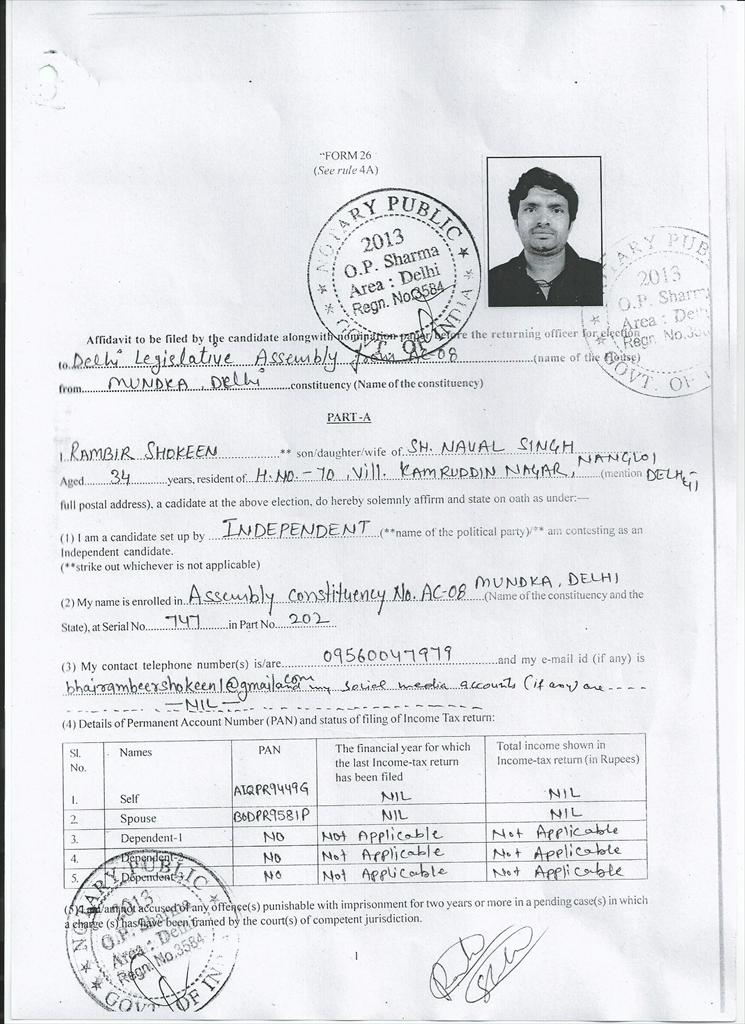 "FORM 26
(See rule 4A)
NOTARY PUBLIC
2013
O.P. Sharma
Area : Delhi
Regn. No.3584
GOVT. OF INDIA
NOTARY PUB
2013
O.P. Sharm
Area : Del
Regn. No.
GOVT. OF
Affidavit to be filed by the candidate alongwith nomination paper before the returning officer for election
to Delhi Legislative Assembly from AC-08 (name of the House)
from MUNDKA, Delhi constituency (Name of the constituency)
PART-A
I RAMBIR SHOKEEN ** son/daughter/wife of SH. NAVAL SINGH
Aged 34 years, resident of H.NO.-70, Vill. KAMRUDDIN NAGAR, NANGLOI (mention DELHI-41
full postal address), a cadidate at the above election, do hereby solemnly affirm and state on oath as under:—
(1) I am a candidate set up by INDEPENDENT (**name of the political party)/** am contesting as an
Independent candidate.
(**strike out whichever is not applicable)
(2) My name is enrolled in Assembly Constituency No. AC-08 MUNDKA, DELHI (Name of the constituency and the
State), at Serial No. 747 in Part No. 202
(3) My contact telephone number(s) is/are 09560047979 and my e-mail id (if any) is
bhairambeershokeen1@gmail.com and my social media accounts (if any) are ----
- - - - - - - — NIL — - - - - - - -
(4) Details of Permanent Account Number (PAN) and status of filing of Income Tax return:
Sl. No. Names PAN The financial year for which the last Income-tax return has been filed Total income shown in Income-tax return (in Rupees)
1. Self AIQPR9449G NIL NIL
2. Spouse BODPR9581P NIL NIL
3. Dependent-1 NO Not Applicable Not Applicable
4. Dependent-2 NO Not Applicable Not Applicable
5. Dependent-3 NO Not Applicable Not Applicable
(5) I am/am not accused of any offence(s) punishable with imprisonment for two years or more in a pending case(s) in which
a charge (s) has/have been framed by the court(s) of competent jurisdiction.
NOTARY PUBLIC
2013
O.P. Sharma
Area : Delhi
Regn. No.3584
GOVT OF IND
1